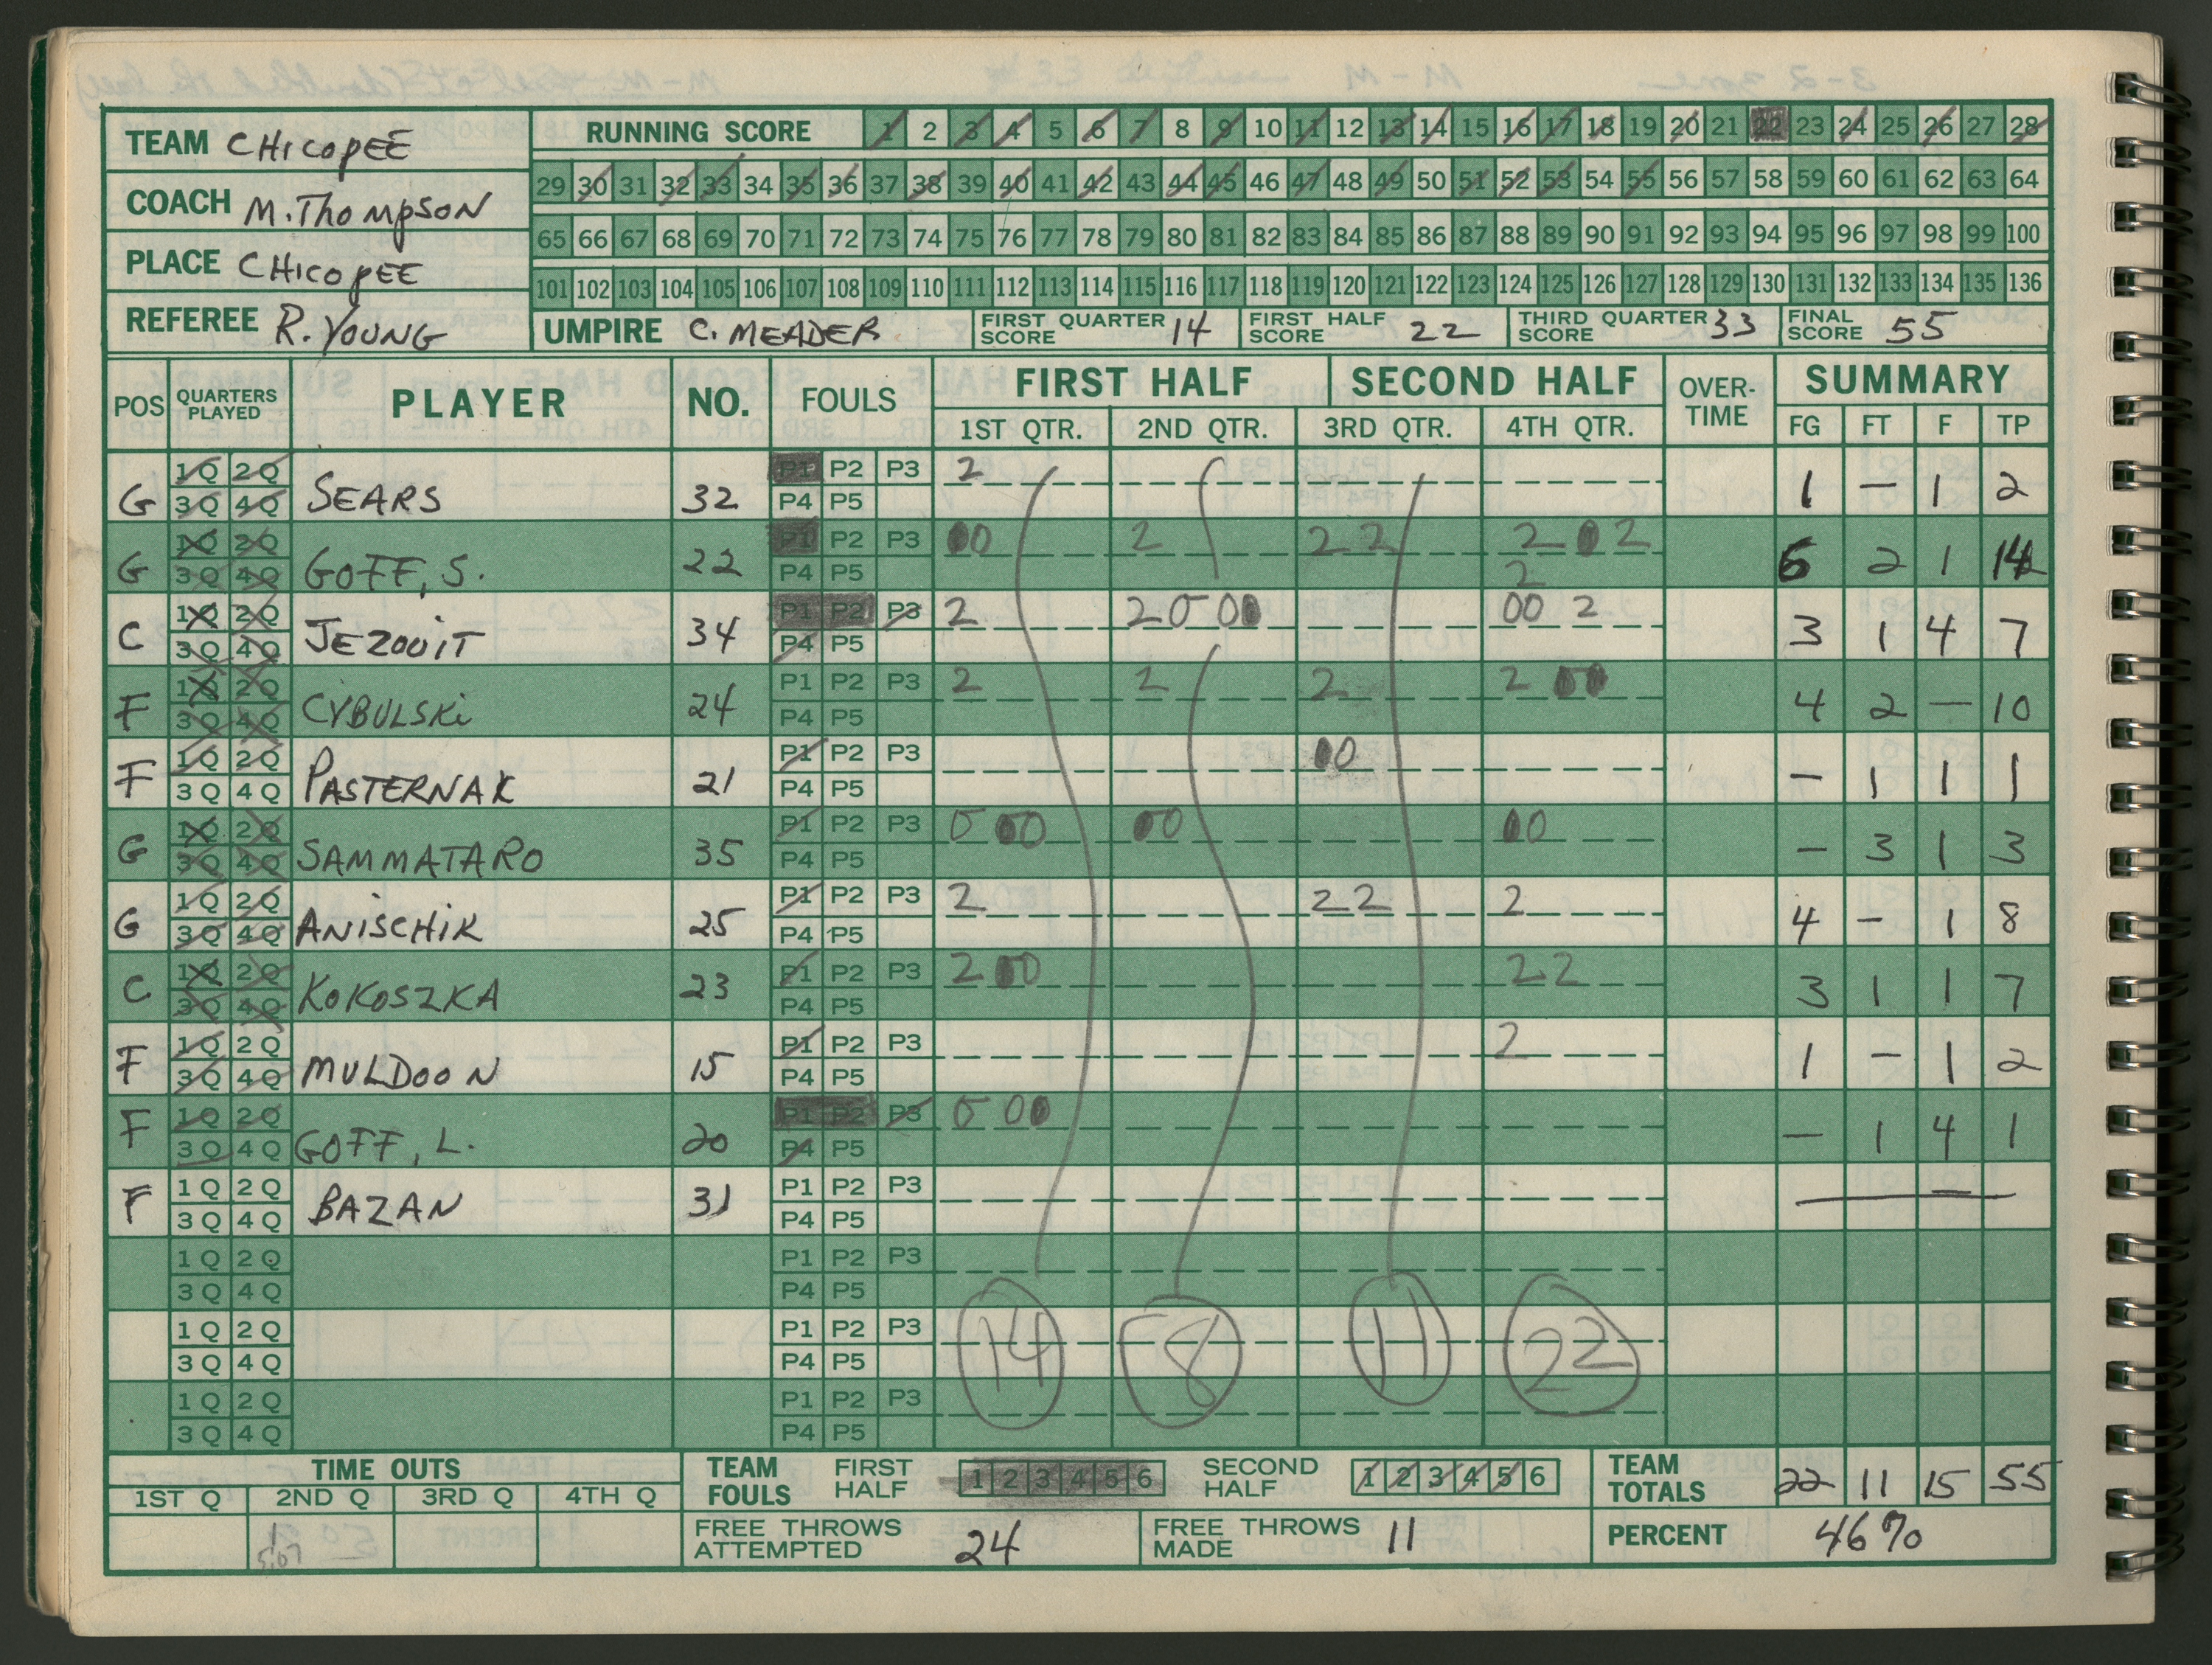 TEAM CHICOPEE
COACH M. THOMPSON
PLACE CHICOPEE
REFEREE R. YOUNG
RUNNING SCORE 1 2 3 4 5 6 7 8 9 10 11 12 13 14 15 16 17 18 19 20 21 22 23 24 25 26 27 28
29 30 31 32 33 34 35 36 37 38 39 40 41 42 43 44 45 46 47 48 49 50 51 52 53 54 55 56 57 58 59 60 61 62 63 64
65 66 67 68 69 70 71 72 73 74 75 76 77 78 79 80 81 82 83 84 85 86 87 88 89 90 91 92 93 94 95 96 97 98 99 100
101 102 103 104 105 106 107 108 109 110 111 112 113 114 115 116 117 118 119 120 121 122 123 124 125 126 127 128 129 130 131 132 133 134 135 136
UMPIRE C. MEADER FIRST QUARTER SCORE 14 FIRST HALF SCORE 22 THIRD QUARTER SCORE 33 FINAL SCORE 55
POS QUARTERS PLAYED PLAYER NO. FOULS FIRST HALF SECOND HALF OVER-TIME SUMMARY
1ST QTR. 2ND QTR. 3RD QTR. 4TH QTR. FG FT F TP
G 1Q 2Q 3Q 4Q SEARS 32 P1 P2 P3 P4 P5 2 1 – 1 2
G 1Q 2Q 3Q 4Q GOFF, S. 22 P1 P2 P3 P4 P5 00 2 2 2 2 0 2 2 6 2 1 14
C 1Q 2Q 3Q 4Q JEZOUIT 34 P1 P2 P3 P4 P5 2 2 0 00 00 2 3 1 4 7
F 1Q 2Q 3Q 4Q CYBULSKI 24 P1 P2 P3 P4 P5 2 2 2 2 00 4 2 – 10
F 1Q 2Q 3Q 4Q PASTERNAK 21 P1 P2 P3 P4 P5 00 – 1 1 1
G 1Q 2Q 3Q 4Q SAMMATARO 35 P1 P2 P3 P4 P5 0 00 00 00 – 3 1 3
G 1Q 2Q 3Q 4Q ANISCHIK 25 P1 P2 P3 P4 P5 2 2 2 2 4 – 1 8
C 1Q 2Q 3Q 4Q KOKOSZKA 23 P1 P2 P3 P4 P5 2 00 2 2 3 1 1 7
F 1Q 2Q 3Q 4Q MULDOON 15 P1 P2 P3 P4 P5 2 1 – 1 2
F 1Q 2Q 3Q 4Q GOFF, L. 20 P1 P2 P3 P4 P5 0 00 – 1 4 1
F 1Q 2Q 3Q 4Q BAZAN 31 P1 P2 P3 P4 P5 —
1Q 2Q 3Q 4Q P1 P2 P3 P4 P5
1Q 2Q 3Q 4Q P1 P2 P3 P4 P5 14 8 11 22
1Q 2Q 3Q 4Q P1 P2 P3 P4 P5
TIME OUTS TEAM FOULS FIRST HALF 1 2 3 4 5 6 SECOND HALF 1 2 3 4 5 6 TEAM TOTALS 22 11 15 55
1ST Q 2ND Q 3RD Q 4TH Q
1 5:07 FREE THROWS ATTEMPTED 24 FREE THROWS MADE 11 PERCENT 46%